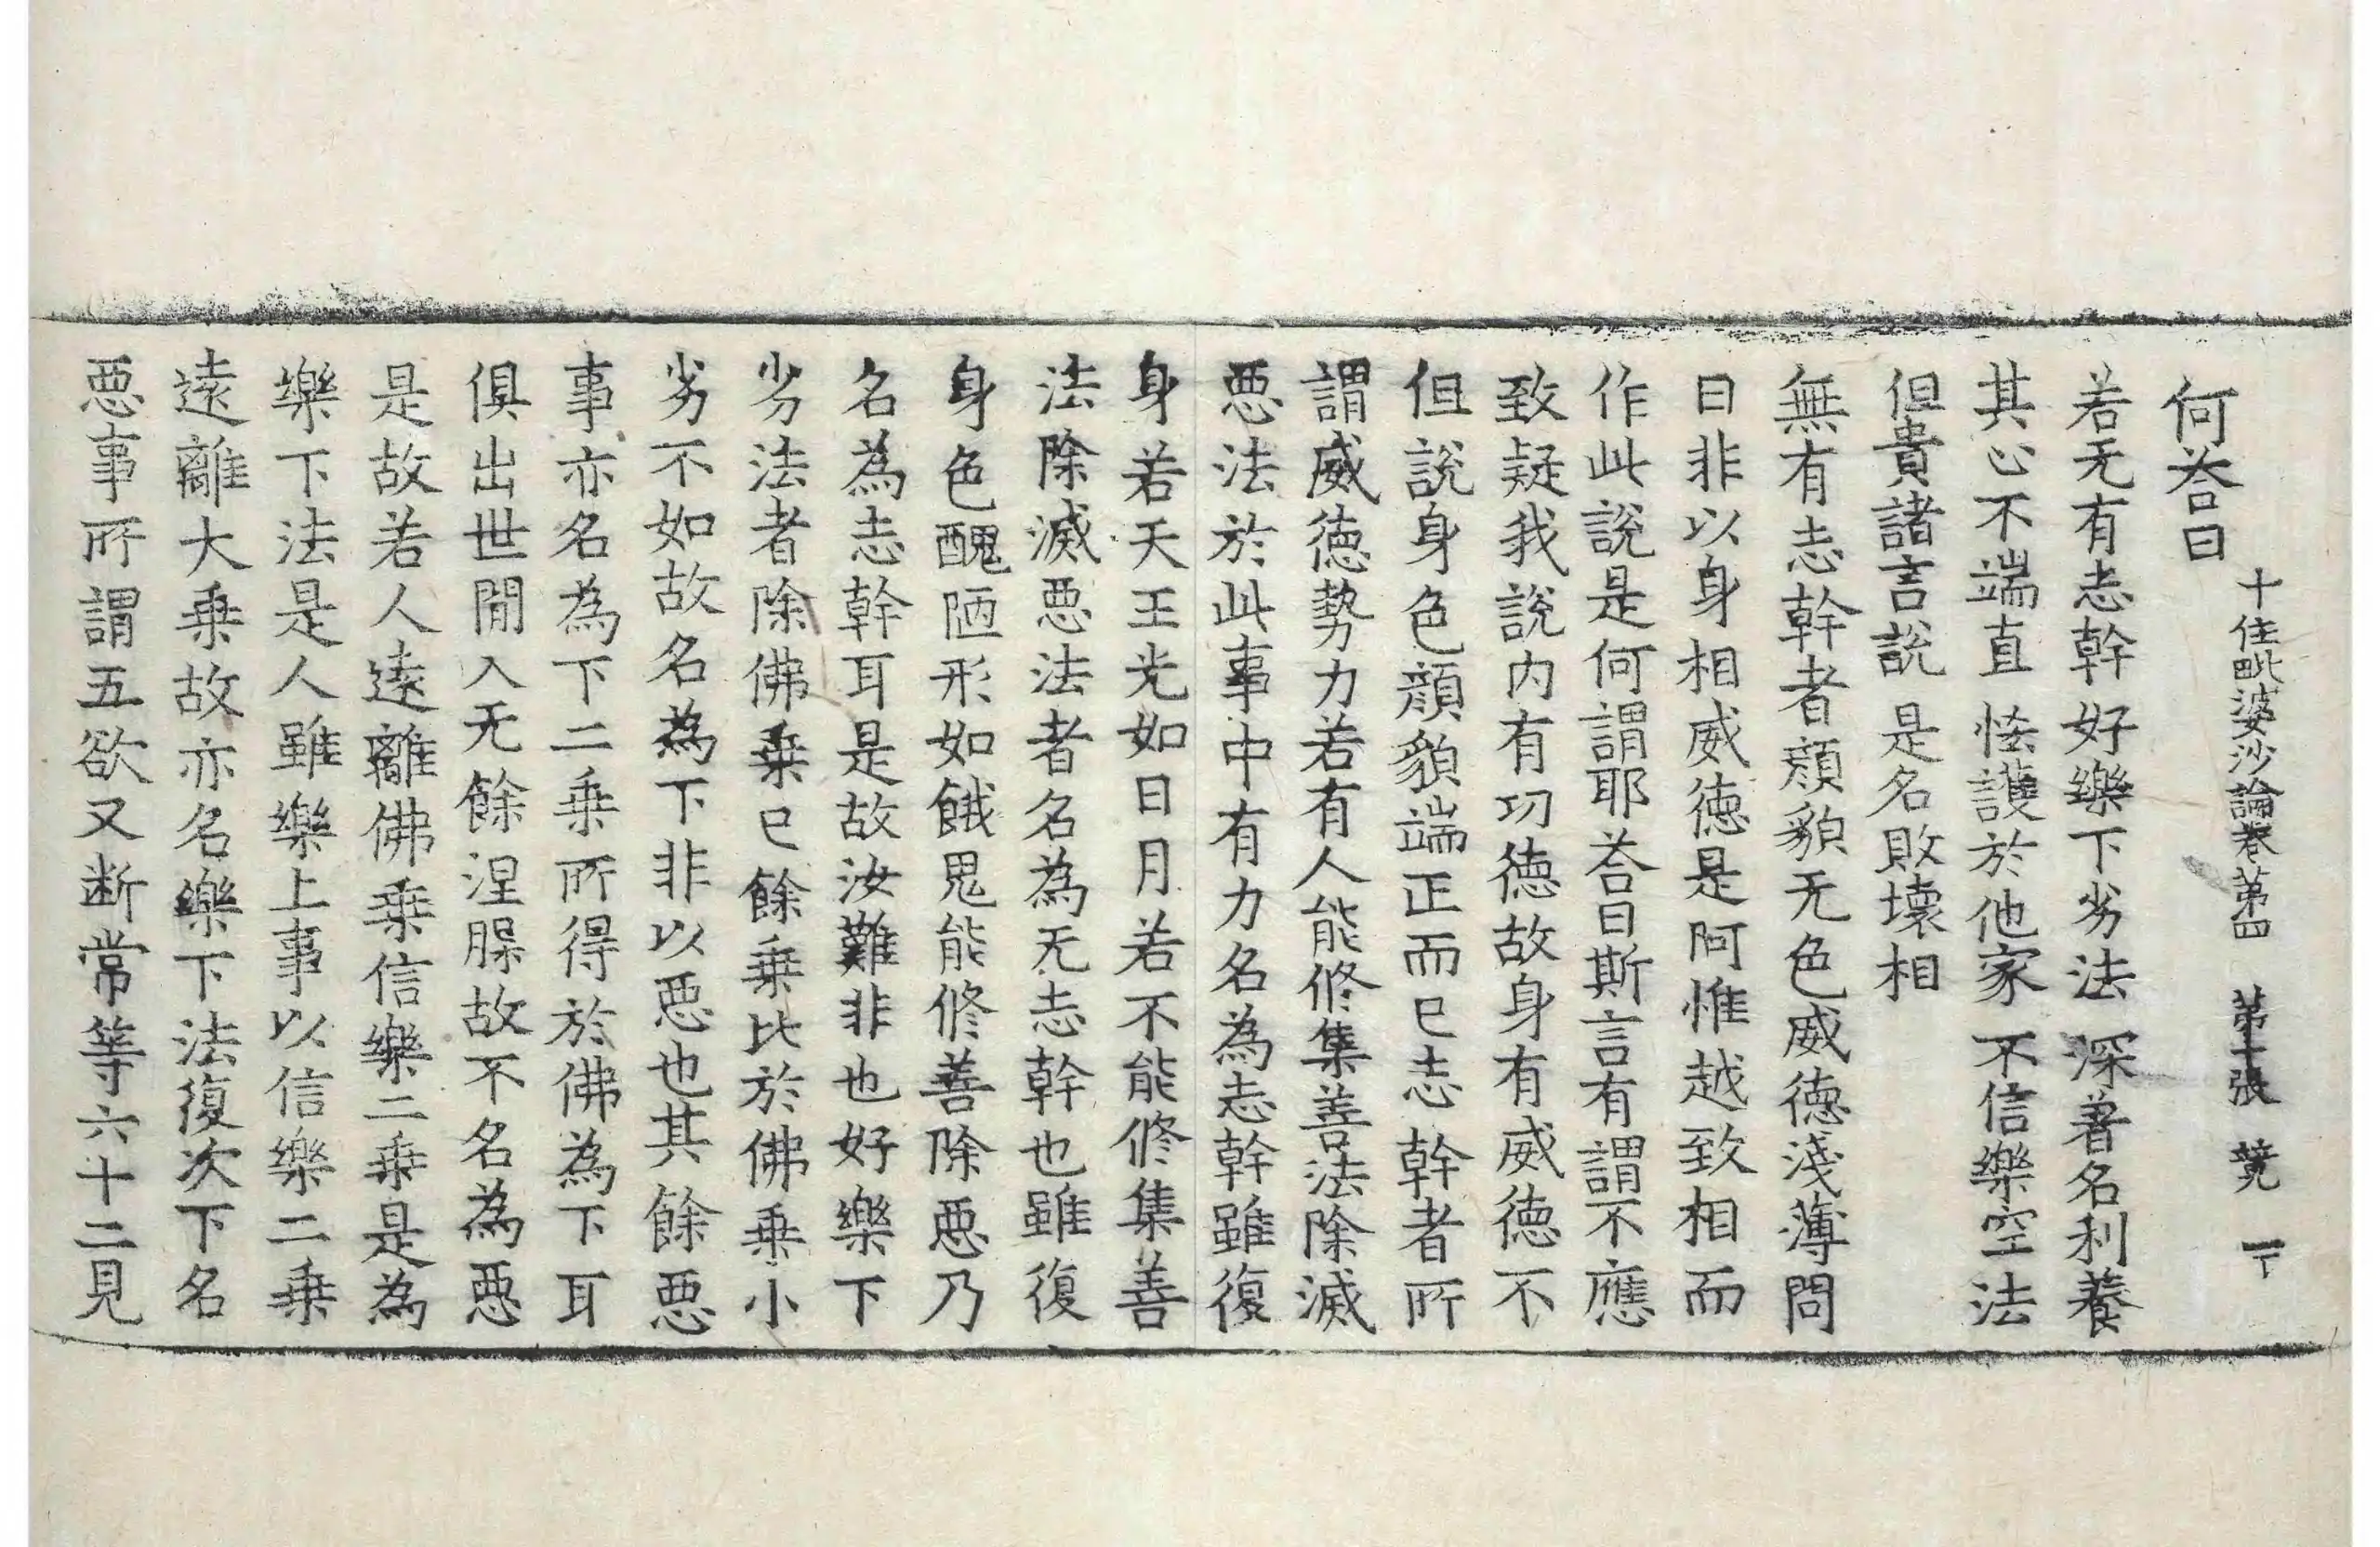 十住毗婆沙論卷第四 第十張 竟
何荅曰
若无有志幹 好樂下劣法 深著名利養
其心不端直 悋護於他家 不信樂空法
但貴諸言說 是名敗壞相
無有志幹者顔貌无色威徳淺薄問
曰非以身相威徳是阿惟越致相而
作此說是何謂耶荅曰斯言有謂不應
致疑我說内有功徳故身有威徳不
但說身色顔貌端正而已志幹者所
謂威徳勢力若有人能修集善法除滅
惡法於此事中有力名為志幹雖復
身若天王光如日月若不能修集善
法除滅惡法者名為无志幹也雖復
身色醜陋形如餓鬼能修善除惡乃
名為志幹耳是故汝難非也好樂下
劣法者除佛乗已餘乗比於佛乗小
劣不如故名為下非以惡也其餘惡
事亦名為下二乗所得於佛為下耳
俱出世間入无餘涅槃故不名為惡
是故若人遠離佛乗信樂二乗是為
樂下法是人雖樂上事以信樂二乗
遠離大乗故亦名樂下法復次下名
惡事所謂五欲又断常等六十二見